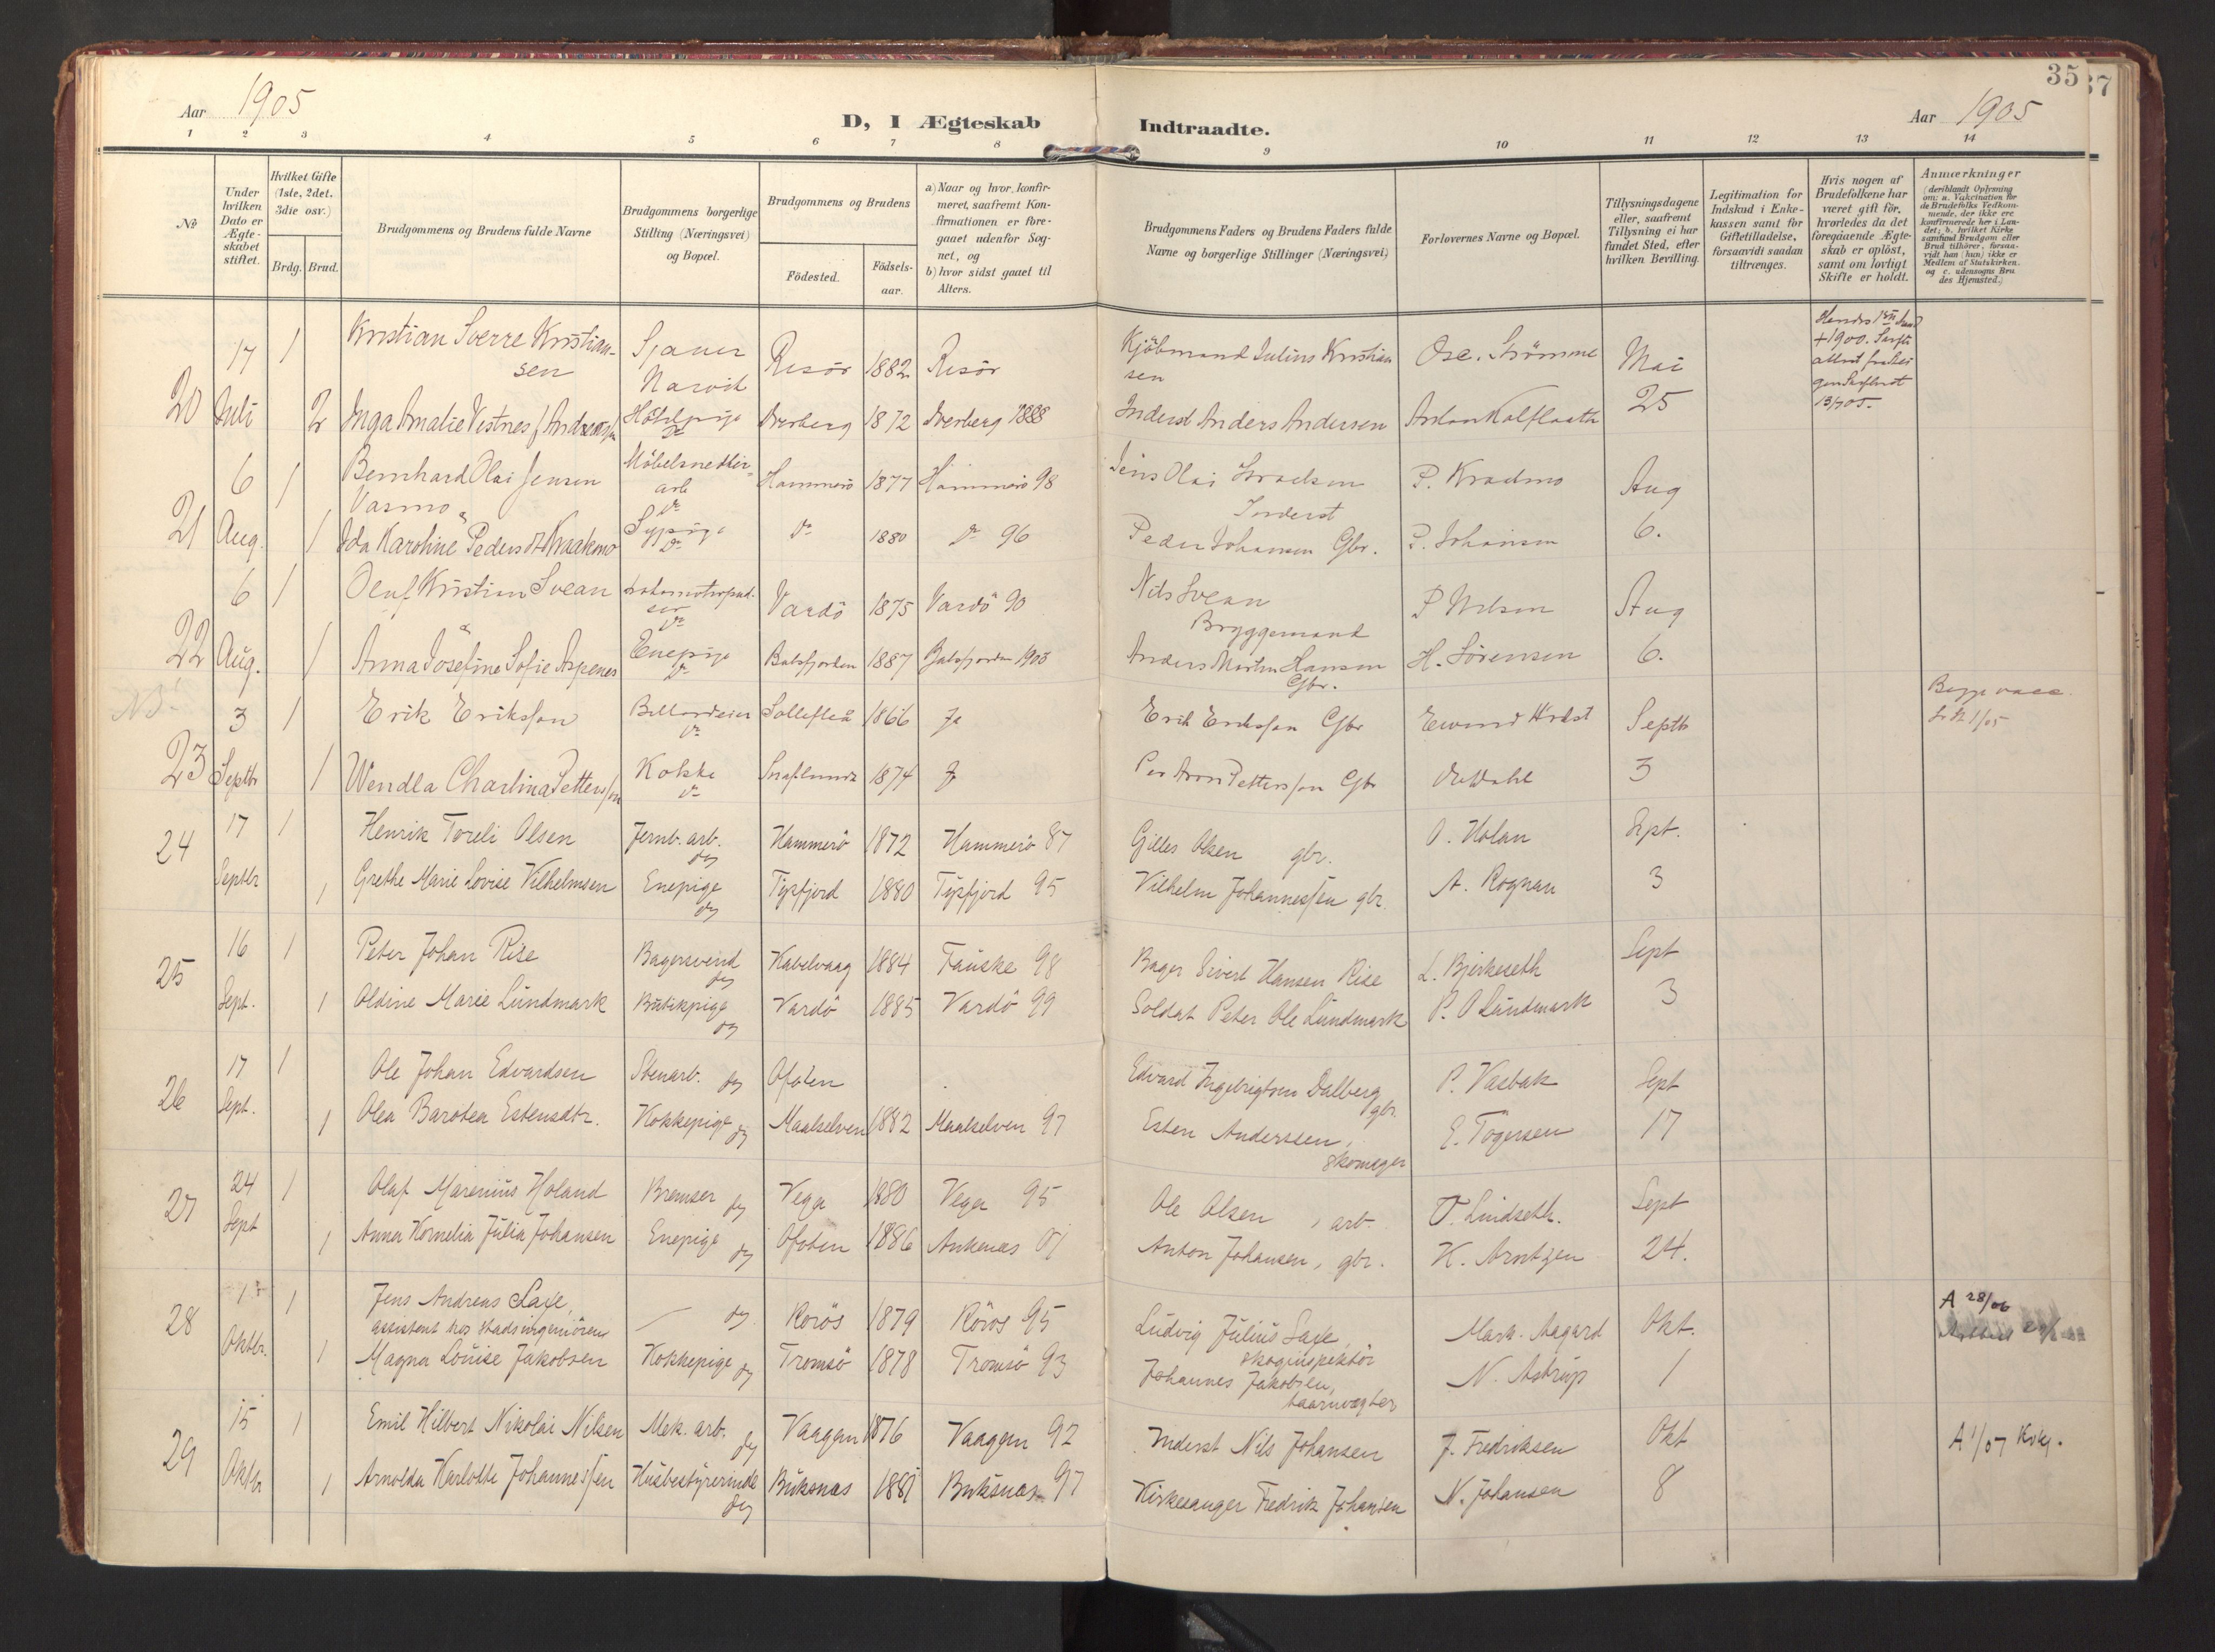 35
37
Aar 1905
D, I Ægteskab
Indtraadte.
Aar 1905
1 2 3 4 5 6 7 8 9 10 11 12 13 14
№
Under hvilken Dato er Ægte-skabet stiftet.
Hvilket Gifte (1ste, 2det. 3die osv.)
Brdg. Brud.
Brudgommens og Brudens fulde Navne
Brudgommens borgerlige Stilling (Næringsvei) og Bopæl.
Brudgommens og Brudens
Födested.
Födsels-aar.
a) Naar og hvor konfir-meret, saafremt Kon-firmationen er fore-gaaet udenfor Sog-net, og
b) hvor sidst gaaet til Alters.
Brudgommens Faders og Brudens Faders fulde Navne og borgerlige Stillinger (Næringsvei)
Forlovernes Navne og Bopæl.
Tillysningsdagene eller, saafremt Tillysning ei har fundet Sted, efter hvilken Bevilling.
Legitimation for Indskud i Enke-kassen samt for Giftetilladelse, forsaavidt saadan tiltrænges.
Hvis nogen af Brudefolkene har været gift för, hvorledes da det foregaaende Ægte-skab er oplöst, samt om lovligt Skifte er holdt.
Anmærkninger
(deriblandt Oplysning om: a. Vakcination for de Brudefolks Vedkom-mende, der ikke ere konfirmerede her i Lan-det; b. hvilket Kirke samfund Brudgom eller Brud tilhörer, forsaa-vidt han (hun) ikke er Medlem af Statskirken. og c. udensogns Bru des Hjemsted.)
20 17 Juli 1 Kristian Sverre Kristian-sen Sjauer Narvik Risör 1882 Risör Kjöbmand Julius Kristiansen Osc. Strömme Mai 25
2 Inga Amalie Vestnes f. Andersen 1872 1888 Inderst Anders Andersen
+1900. 13/7 05.
21 6 Aug. 1 Bernhard Olai Jensen Vasmo Hammerö 1877 Hammerö 98 Jens Olai Inderst P. Kraakmo Aug 6.
1 Ida Karoline Pedersdt. Kraakmo Sypige do do 1880 do 96 Peder Johansen Gbr. P. Johansen
22 6 Aug. 1 Oluf Kristian Svean do Vardö 1875 Vardö 90 Nils Svean Bryggemand P Nilsen Aug 6.
1 Anna Josefine Sofie Aspenes Enepige do Balsfjorden 1887 Balsfjorden 1903 Anders Morten Hansen Gbr. H. Sörensen
N3.
23 3 Septbr 1 Erik Eriksson do Sollefteå 1866 Ja Erik Eriksson Gbr Septb 3
1 Wendla Charlina Pettersson Kokke do 1874 Ja Per Aron Pettersson Gbr
Begge vacc.
24 17 Septbr 1 Henrik Toreli Olsen Jernb. arb. do Hammerö 1872 Hammerö 87 Gilles Olsen gbr. O. Holan Sept. 3
1 Grethe Marie Lovise Vilhelmsen Enepige do Tysfjord 1880 Tysfjord 95 Vilhelm Johannessen gbr. A. Rognan
25 16 Sept. 1 Peter Johan Rise Bagersvend do Kabelvaag 1884 Fauske 98 Bager Sivert Hansen Rise L. Bjerkeseth Sept 3
1 Oldine Marie Lundmark Butikpige do Vardö 1885 Vardö 99 Soldat Peter Ole Lundmark P. O Lundmark
26 17 Sept. 1 Ole Johan Edvardsen Stenarb. do Ofoten Edvard Ingebrigtsen Dalberg gbr. P. Vasbak Sept 17
1 Olea Barotea Estensdtr. Kokkepige do Maalselven 1882 Maalselven 97 Esten Anderssen, skomager E. Tögersen
27 24 Sept 1 Olaf Marenius Holand Bremser do Vega 1880 Vega 95 Ole Olsen, arb. O. Lindseth. Sept 24.
1 Anna Kornelia Julia Johansen Enepige do Ofoten 1886 Ankenæs 01 Anton Johansen, gbr. K. Arntzen
28 1 Oktbr. 1 Jens Andreas Saxe, assistent hos stadsingeniören — do Rörös 1879 Röros 95 Ludvig Julius Saxe, skoginspektör Mark. Aagard Okt. 1 A 28/06
1 Magna Louise Jakobsen Kokkepige do Tromsö 1878 Tromsö 93 Johannes Jakobsen, taarnvægter N. Astrup
29 15 Oktbr 1 Emil Hilbert Nikolai Nilsen Mek. arb. do Vaagan 1876 Vaagan 92 Inderst Nils Johansen J. Fredriksen Okt 8 A 1/07
1 Arnolda Karlotte Johannessen Husbestyrerinde do Buksnæs 1881 Buksnæs 97 Kirkesanger Fredrik Johansen N. Johansen